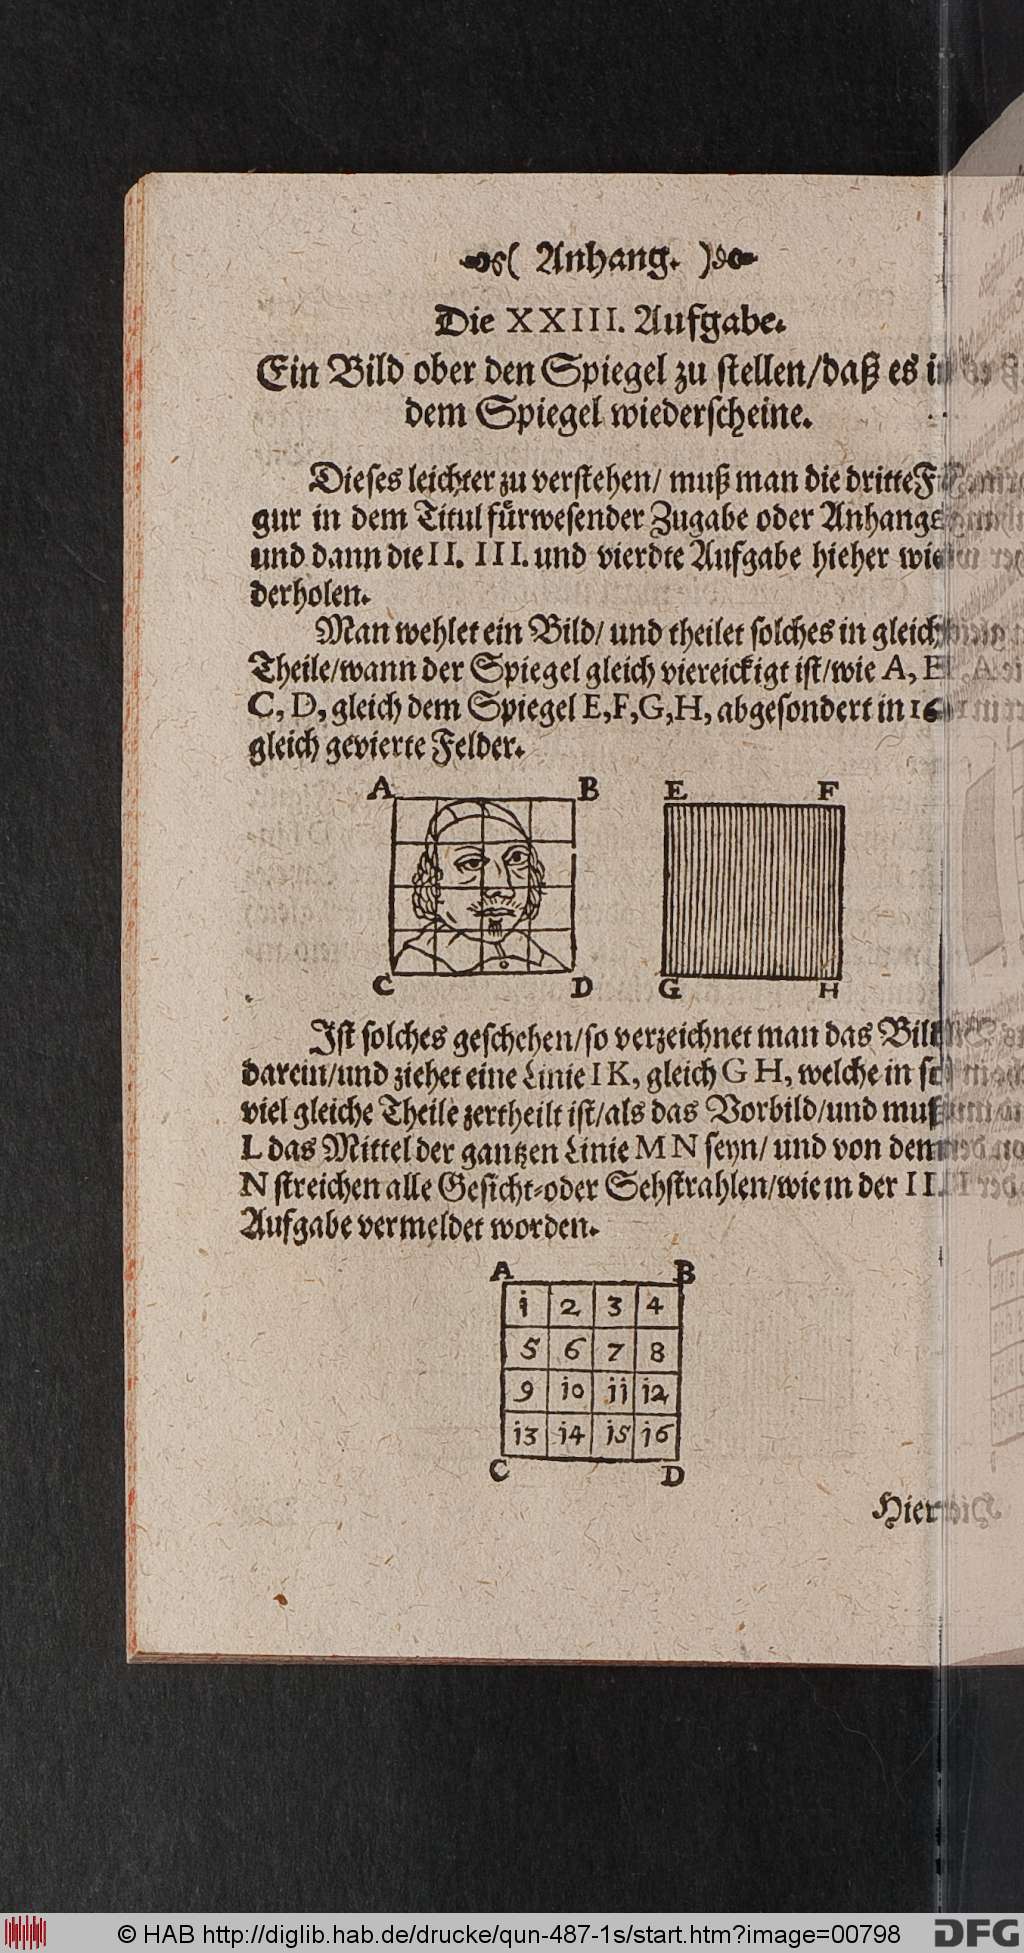 ( Anhang. )
Die XXIII. Aufgabe.
Ein Bild ober den Spiegel zu stellen/daß es in
dem Spiegel wiederscheine.
Dieses leichter zu verstehen/ muß man die dritte Fi-
gur in dem Titul fürwesender Zugabe oder Anhangs
und dann die II. III. und vierdte Aufgabe hieher wie-
derholen.
Man wehlet ein Bild/ und theilet solches in gleiche
Theile/wann der Spiegel gleich viereickigt ist/wie A, B,
C, D, gleich dem Spiegel E,F,G,H, abgesondert in 16
gleich gevierte Felder.
A B E F
C D G H
Ist solches geschehen/so verzeichnet man das Bild
darein/und ziehet eine Linie I K, gleich G H, welche in so
viel gleiche Theile zertheilt ist/als das Vorbild/und muß
L das Mittel der gantzen Linie M N seyn/ und von dem
N streichen alle Gesicht-oder Sehstrahlen/wie in der III.
Aufgabe vermeldet worden.
A B
1 2 3 4
5 6 7 8
9 10 11 12
13 14 15 16
C D
Hier
© HAB http://diglib.hab.de/drucke/qun-487-1s/start.htm?image=00798
DFG